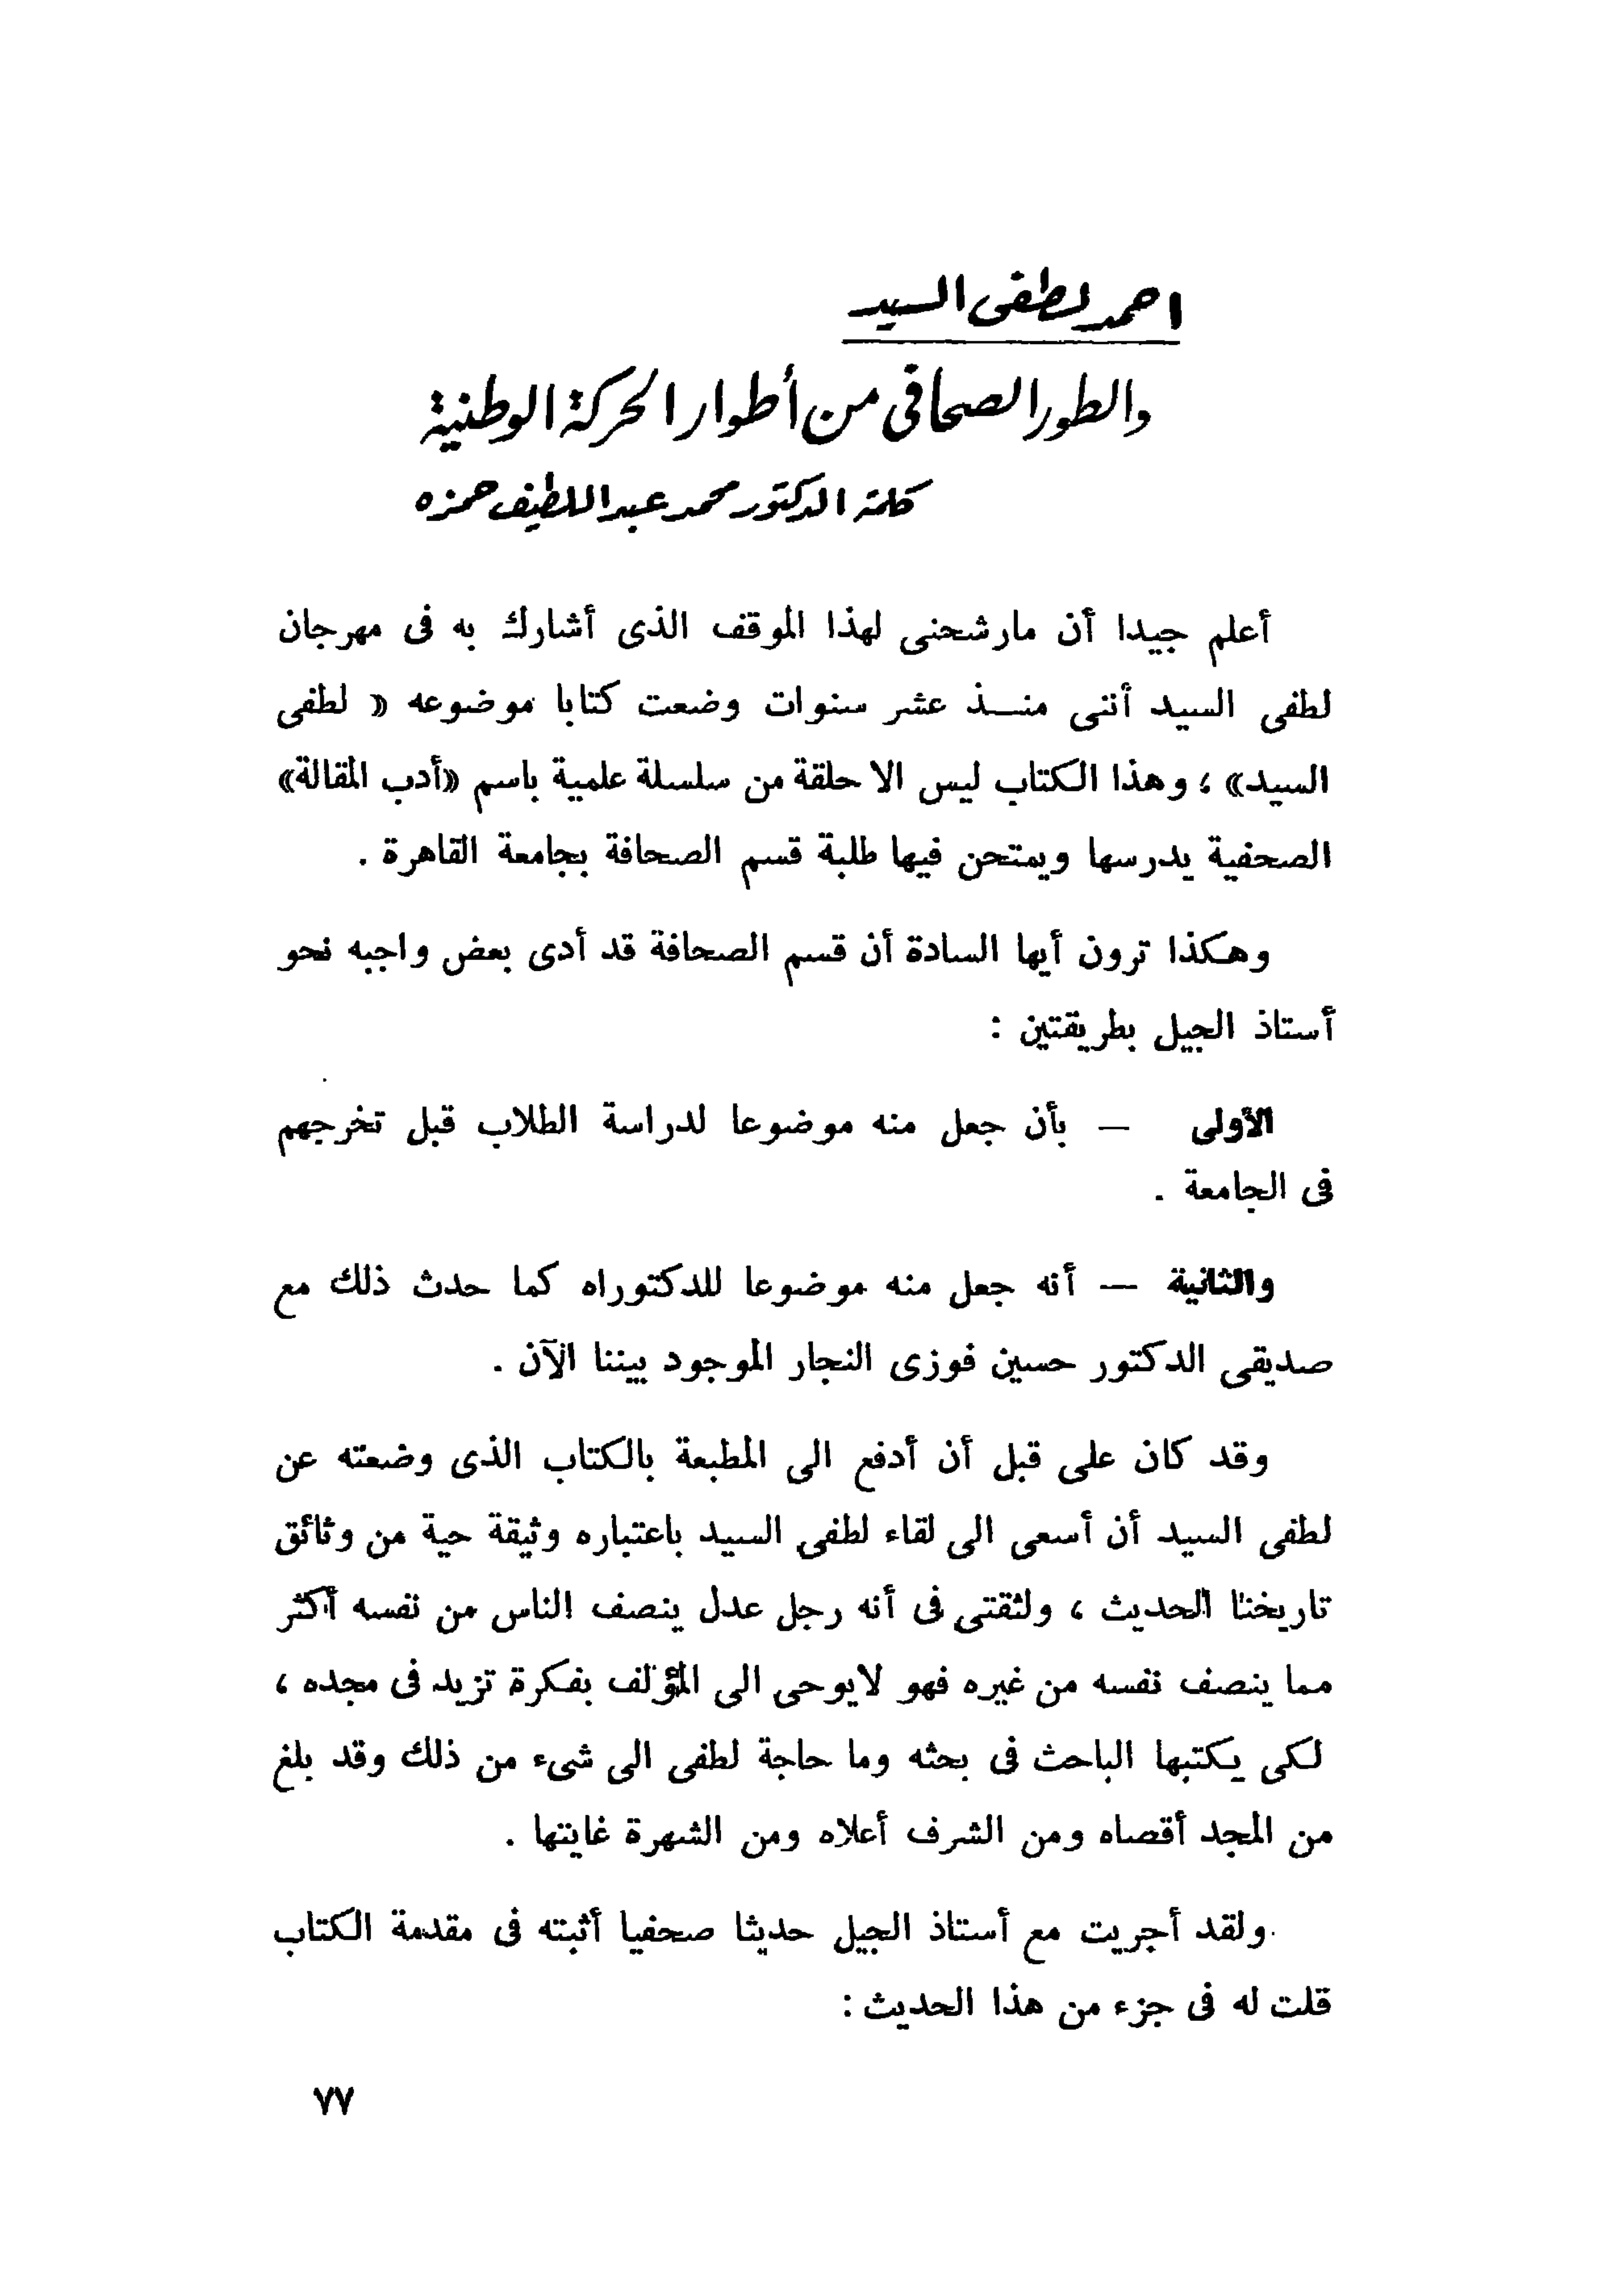 احمد لطفى السيد
والطور الصحافى من أطوار الحركة الوطنية
كلمة الدكتور محمد عبد اللطيف حمزه
أعلم جيدا أن مارشحنى لهذا الموقف الذى أشارك به فى مهرجان
لطفى السيد أننى منــذ عشر سنوات وضعت كتابا موضوعه « لطفى
السيد» ، وهذا الكتاب ليس الا حلقة من سلسلة علمية باسم «أدب المقالة»
الصحفية يدرسها ويمتحن فيها طلبة قسم الصحافة بجامعة القاهرة .
وهكذا ترون أيها السادة أن قسم الصحافة قد أدى بعض واجبه نحو
أستاذ الجيل بطريقتين :
الأولى — بأن جعل منه موضوعا لدراسة الطلاب قبل تخرجهم
فى الجامعة .
والثانية — أنه جعل منه موضوعا للدكتوراه كما حدث ذلك مع
صديقى الدكتور حسين فوزى النجار الموجود بيننا الآن .
وقد كان على قبل أن أدفع الى المطبعة بالكتاب الذى وضعته عن
لطفى السيد أن أسعى الى لقاء لطفى السيد باعتباره وثيقة حية من وثائق
تاريخنا الحديث ، ولثقتى فى أنه رجل عدل ينصف الناس من نفسه أكثر
مما ينصف نفسه من غيره فهو لايوحى الى المؤلف بفكرة تزيد فى مجده ،
لكى يكتبها الباحث فى بحثه وما حاجة لطفى الى شىء من ذلك وقد بلغ
من المجد أقصاه ومن الشرف أعلاه ومن الشهرة غايتها .
ولقد أجريت مع أستاذ الجيل حديثا صحفيا أثبته فى مقدمة الكتاب
قلت له فى جزء من هذا الحديث :
٧٧